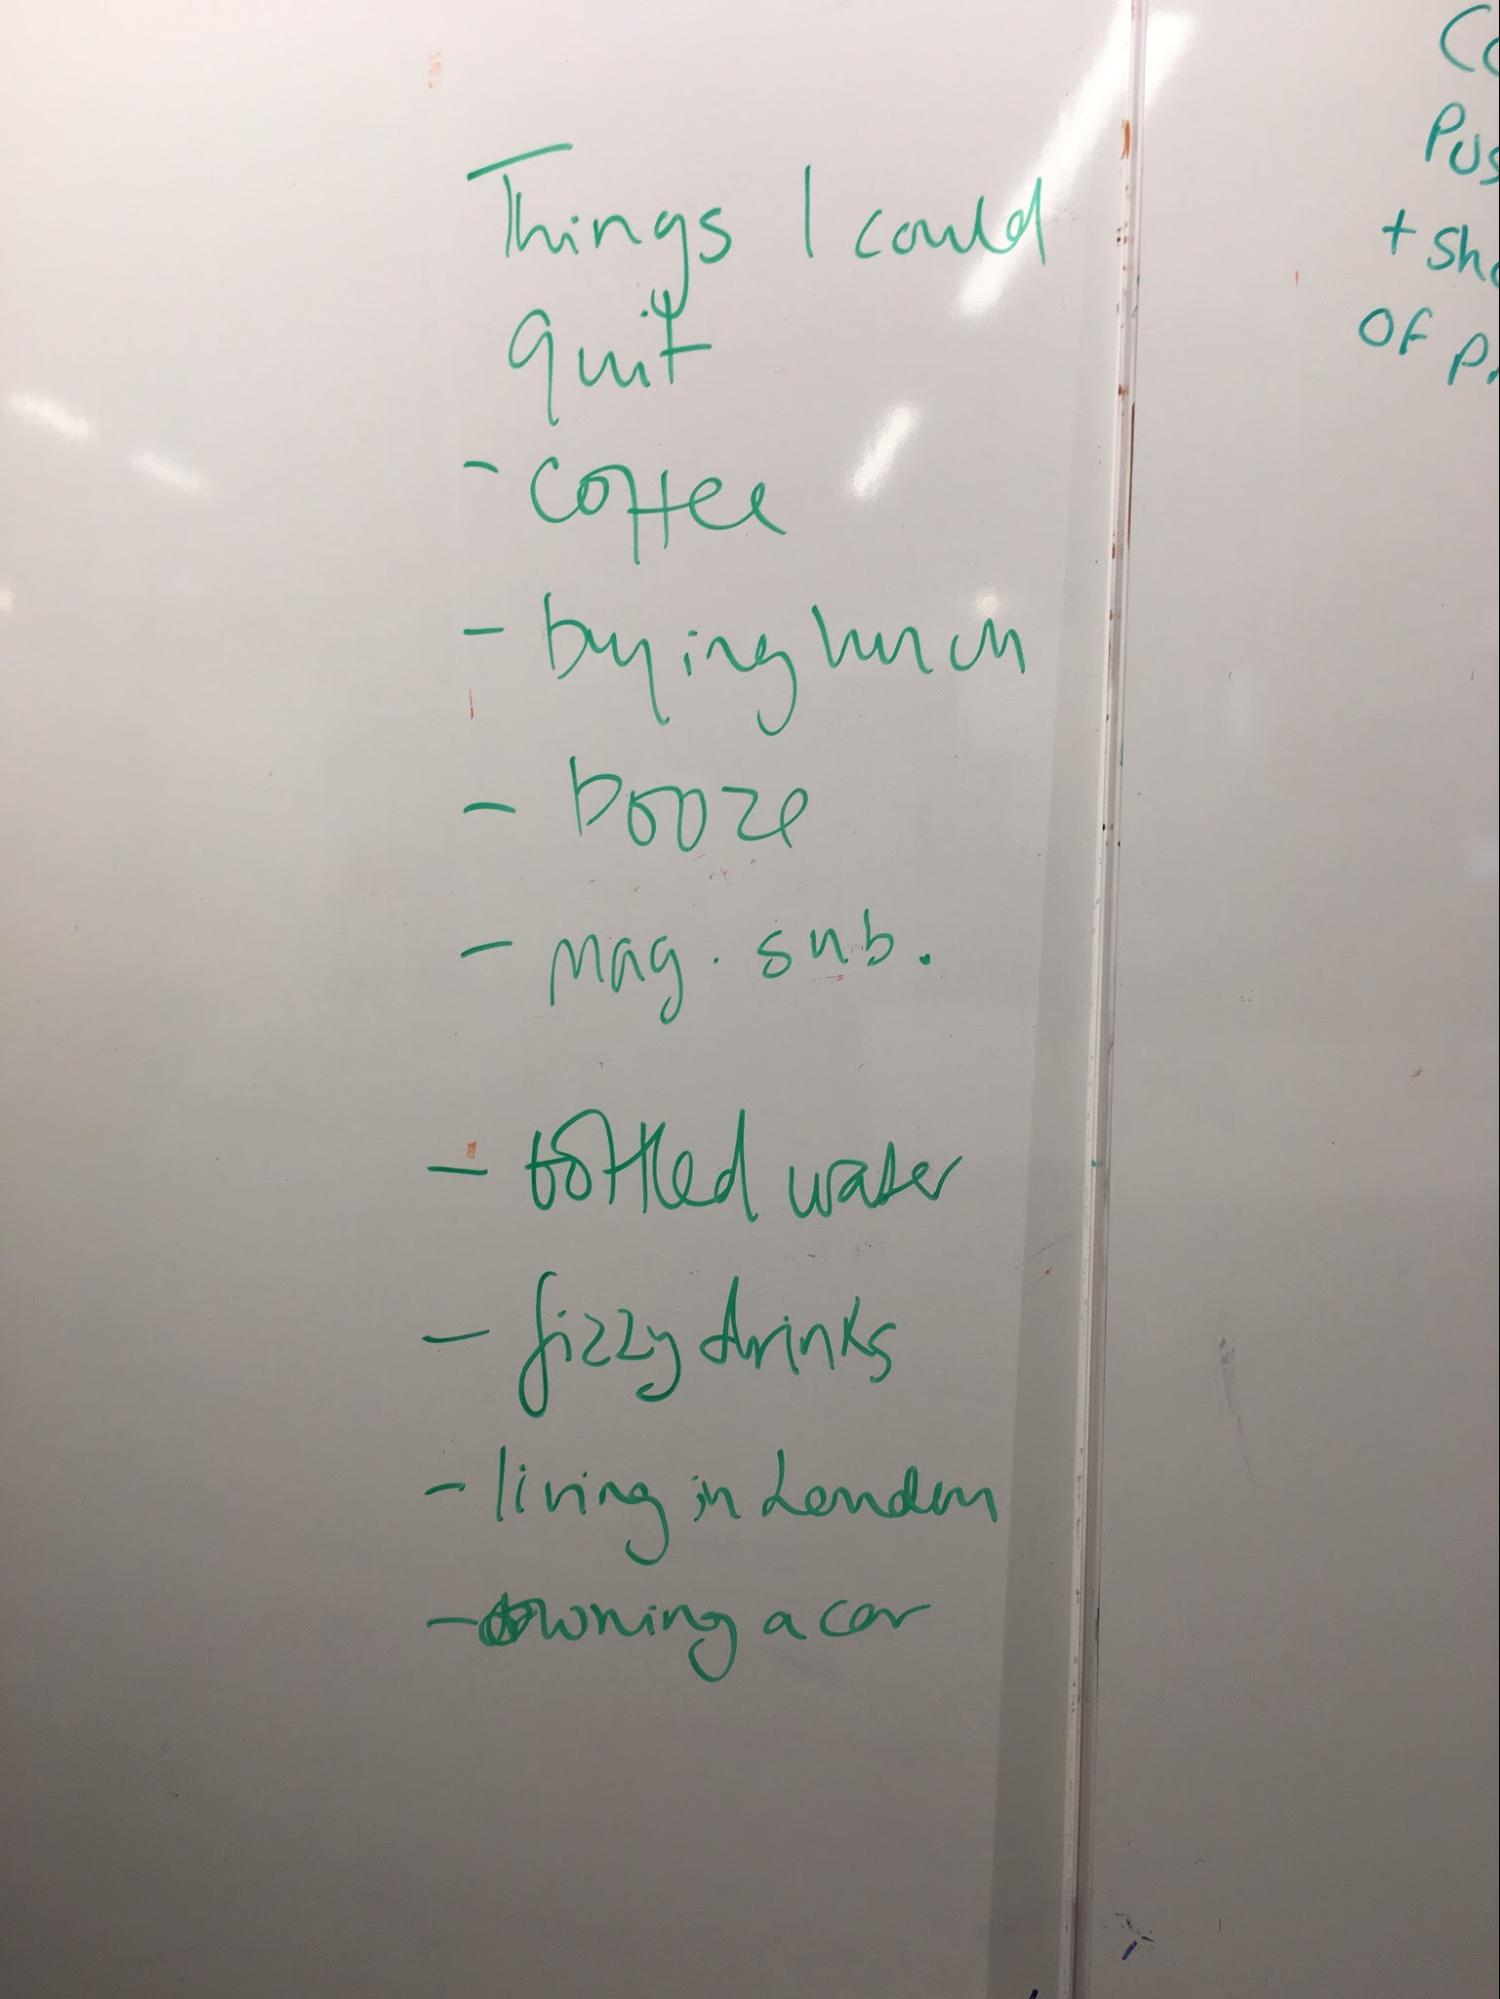 Things I could
quit
- coffee
- buying lunch
- booze
- mag. sub.
- bottled water
- fizzy drinks
- living in London
- owning a car
+
OF